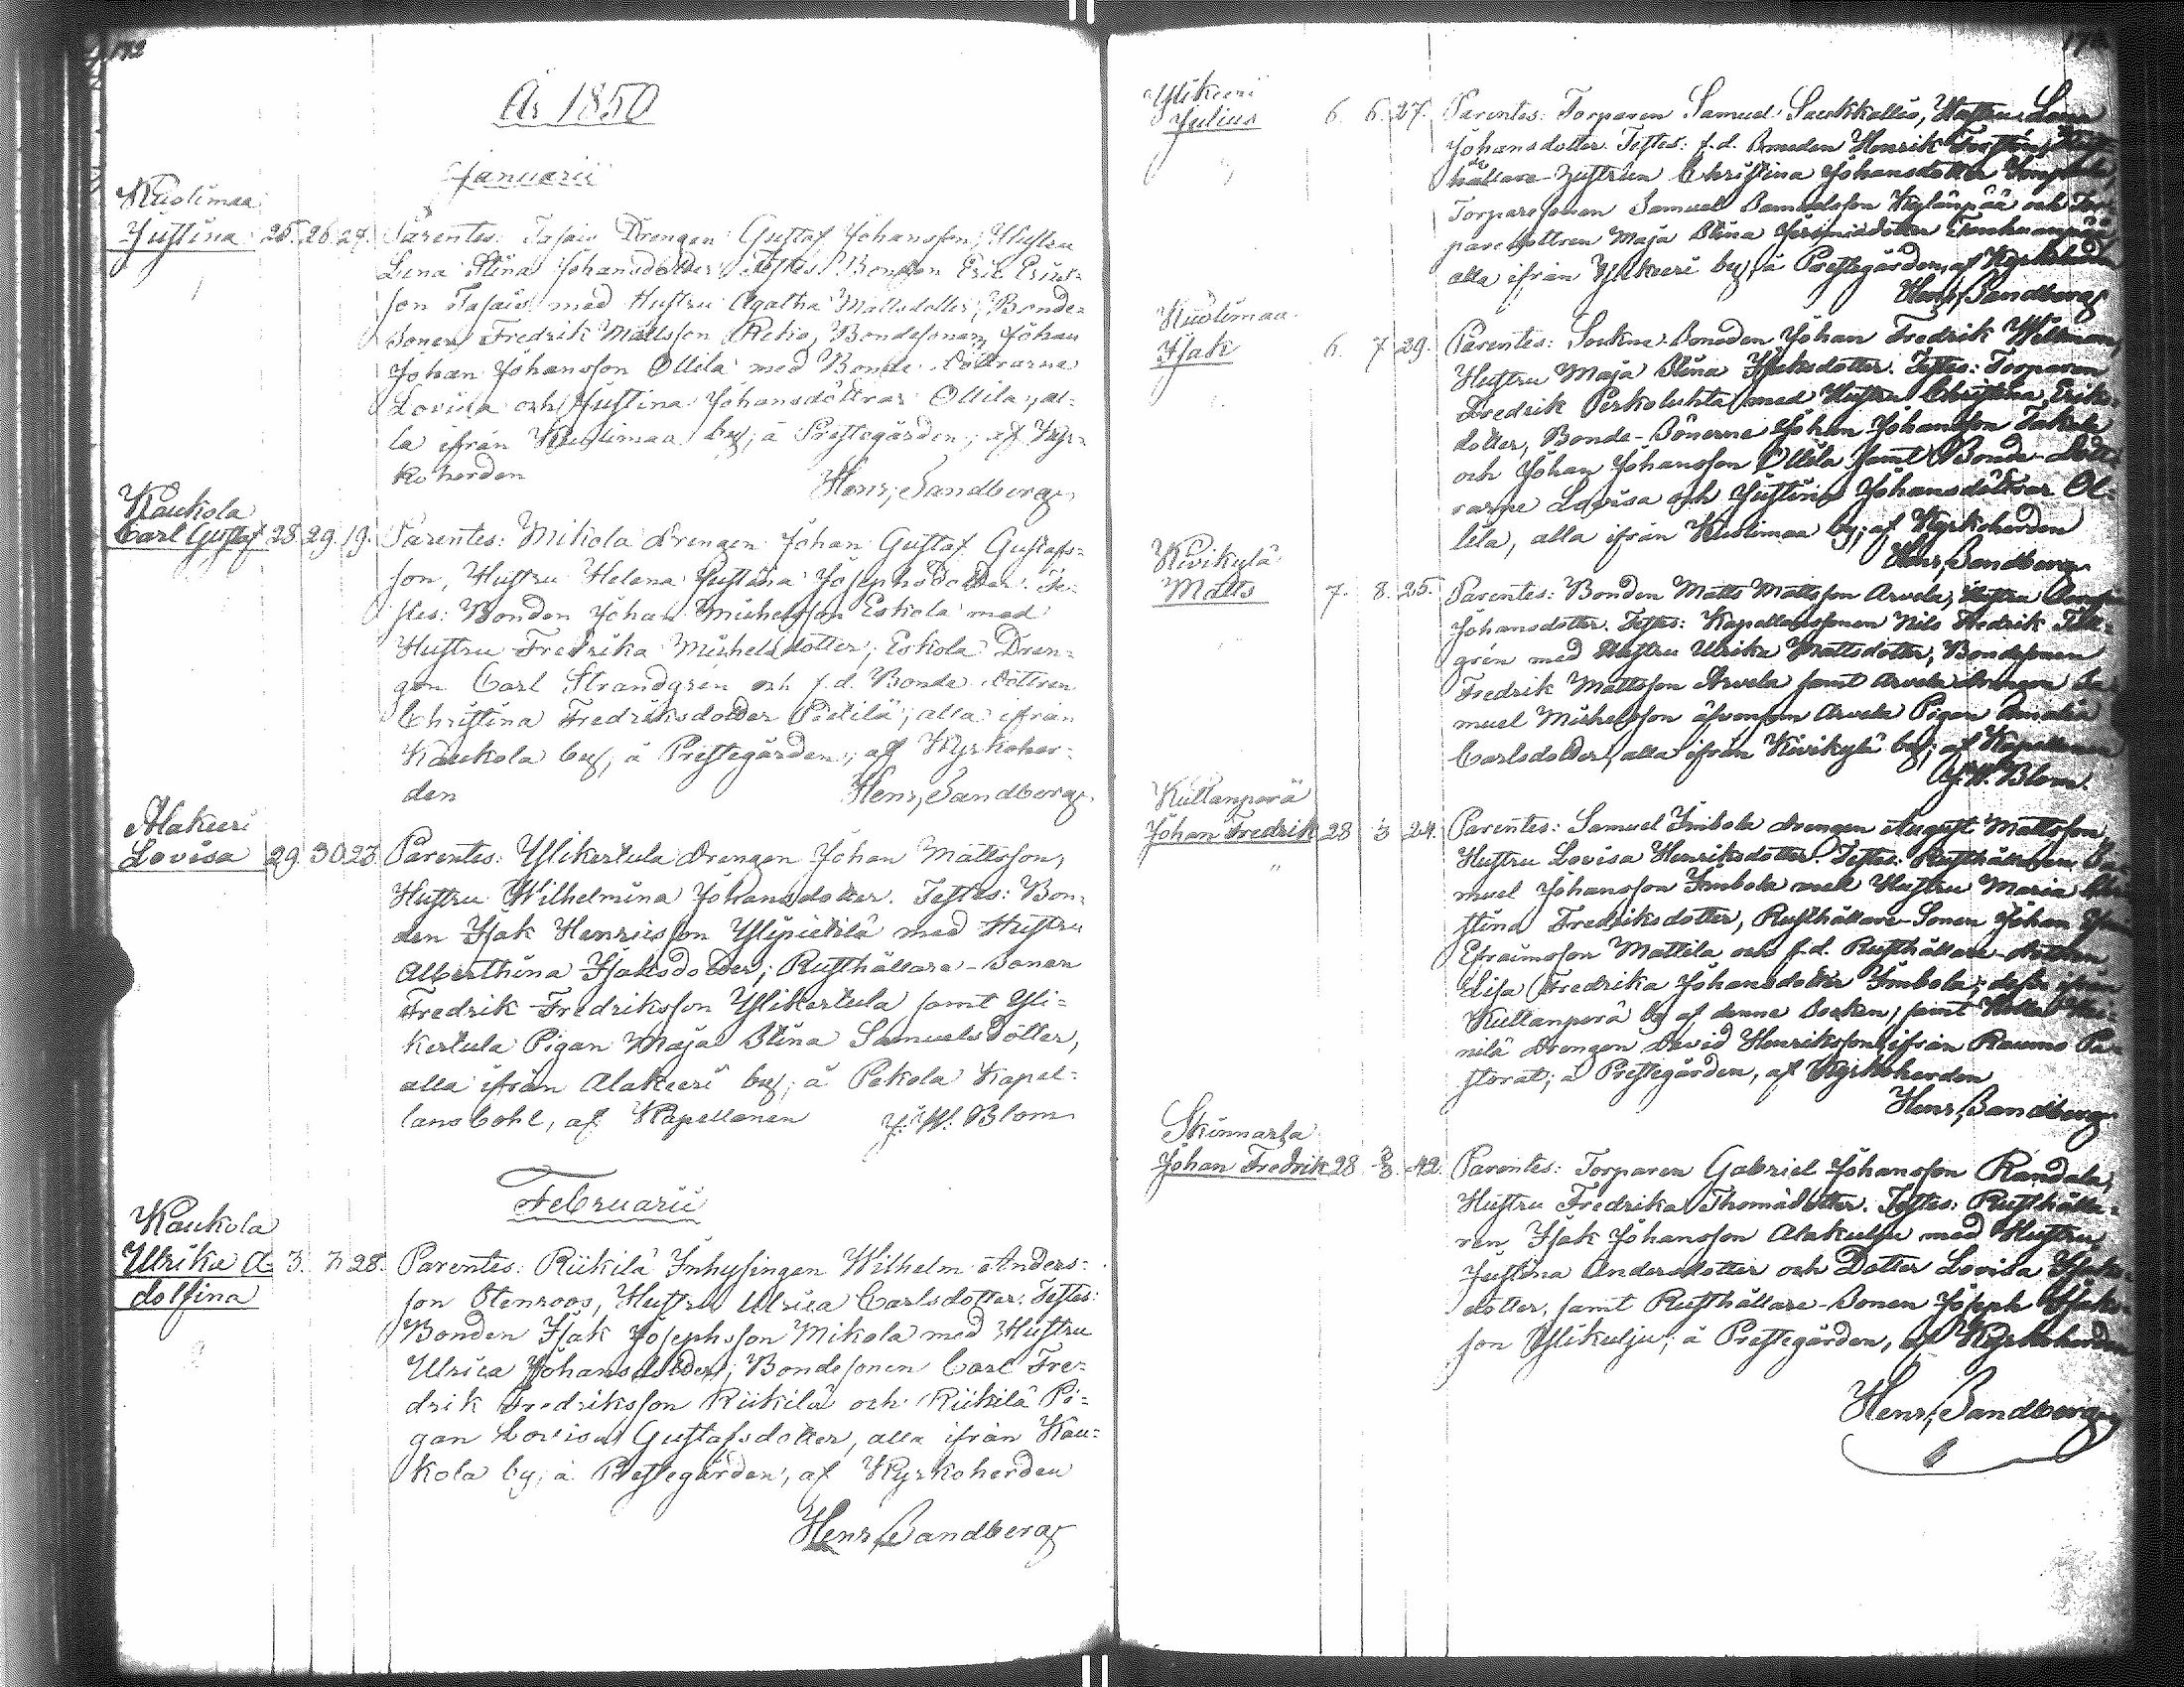 År 1850
Januarii
Kuolimaa
Justina 25. 26. 27. Parentes: Tasais Drengen Gustaf Johansson, Hustru
Lena Stina Johansdotter. Testes: Bonden Eric Erics-
son Tasais med Hustru Agatha Mattsdotter, Bonde-
Sonen Fredrik Mattsson Rekis, Bondesonen Johan
Johan Johansson Ollila med Bonde-Döttrarna
Lovisa och Justina Johansdöttrar Ollila, al-
la ifrån Kuolimaa by; å Prestegården; af Kyr-
koherden Henr; Sandberg.
Kaukola
Carl Gustaf 28. 29. 19. Parentes: Mikola drengen Johan Gustaf Gustafs-
son, Hustru Helena Justina Josephsdotter. Te-
stes: Bonden Johan Michelsson Eskola med
Hustru Fredrika Michelsdotter, Eskola Dren-
gen Carl Strandgren och f.d. Bonde-Döttren
Christina Fredriksdotter Pietilä, alla ifrån
Kaukola by, å Prestegården; af Kyrkoher-
den Henr; Sandberg.
Alakieri
Lovisa 29. 30. 23. Parentes: Ylikertula drengen Johan Mattsson,
Hustru Wilhelmina Johansdotter. Testes: Bon-
den Isak Henricsson Ylipietilä med Hustru
Alberthina Isaksdotter; Rusthållare-Sonen
Fredrik Fredriksson Ylikertula samt Yli-
kertula Pigan Maja Stina Samuelsdotter,
alla ifrån Alakieri by; å Pekola Kapel-
lansbohl, af Kapellanen J. W. Blom
Februarii
Kaukola
Ulrika A- 3. 7. 28. Parentes: Riikilä Inhysingen Wilhelm Anders-
dolfina
son Stenroos, Hustru Ulrica Carlsdotter. Testes:
Bonden Isak Josephsson Mikola med Hustru
Ulrica Johansdotter, Bondesonen Carl Fre-
drik Fredriksson Riikilä och Riikilä Pi-
gan Lovisa Gustafsdotter, alla ifrån Kau-
kola by; å Prestegården, af Kyrkoherden
Henr; Sandberg
Ylikieri
Julius 6. 6. 27. Parentes: Torparen Samuel Saukkallio, Hustru Lena
Johansdotter. Testes: f.d. Bonden Henrik
hållare-Hustrun Christina Johansdotter
Torparesonen Samuel Samuelsson Kylänpää och Tor-
paredottren Maja Stina
alla ifrån Ylikieri by; å Prestegården, af Kyrkoherden
Henr; Sandberg
Kuolimaa
Isak 6. 7. 29. Parentes: Sockne-Smeden Johan Fredrik Willman,
Hustru Maja Stina Isaksdotter. Testes: Torparen
Fredrik Perkoluhta med Hustru Christina Eriks-
dotter, Bonde-Sönerne Johan Johansson
och Johan Johansson Ollila samt Bonde-Dött-
rarne Lovisa och Justina Johansdöttrar Ol-
lila, alla ifrån Kuolimaa by; af Kyrkoherden
Henr; Sandberg
Kivikylä
Matts 7. 8. 25. Parentes: Bonden Matts Mattsson Arvela, Hustru
Johansdotter. Testes: Kapellanssonen Nils Fredrik
grén med Hustru Ulrika Mattsdotter, Bondesonen
Fredrik Mattsson Arvela samt Arvela drengen Sa-
muel Michelsson äfvensom Arvela Pigan Amalia
Carlsdotter, alla ifrån Kivikylä by; af Kapellanen
J. W. Blom.
Kullanperä
Johan Fredrik 28 3 24. Parentes: Samuel Imbola drengen August Mattsson,
Hustru Lovisa Henriksdotter. Testes: Rusthållaren Sa-
muel Johansson Imbola med Hustru Maria Chri-
stina Fredriksdotter, Rusthållare-Sonen Johan
Efraimsson Mattila och f.d. Rusthållare-dottren
Lisa Fredrika Johansdotter Imbola; desse ifrån
Kullanperä by af denna Socken, samt
nilä drengen David Henriksson ifrån Raumo Pa-
storat; å Prestegården, af Kyrkoherden
Henr; Sandberg
Skinnarla
Johan Fredrik 28 3 42. Parentes: Torparen Gabriel Johansson Randala,
Hustru Fredrika Thomasdotter. Testes: Rusthålla-
ren Isak Johansson Alakulju med Hustru
Justina Andersdotter och Dotter Lovisa Isaks-
dotter, samt Rusthållare-Sonen Joseph Isaks-
son Ylikulju; å Prestegården, af Kyrkoherden
Henr; Sandberg